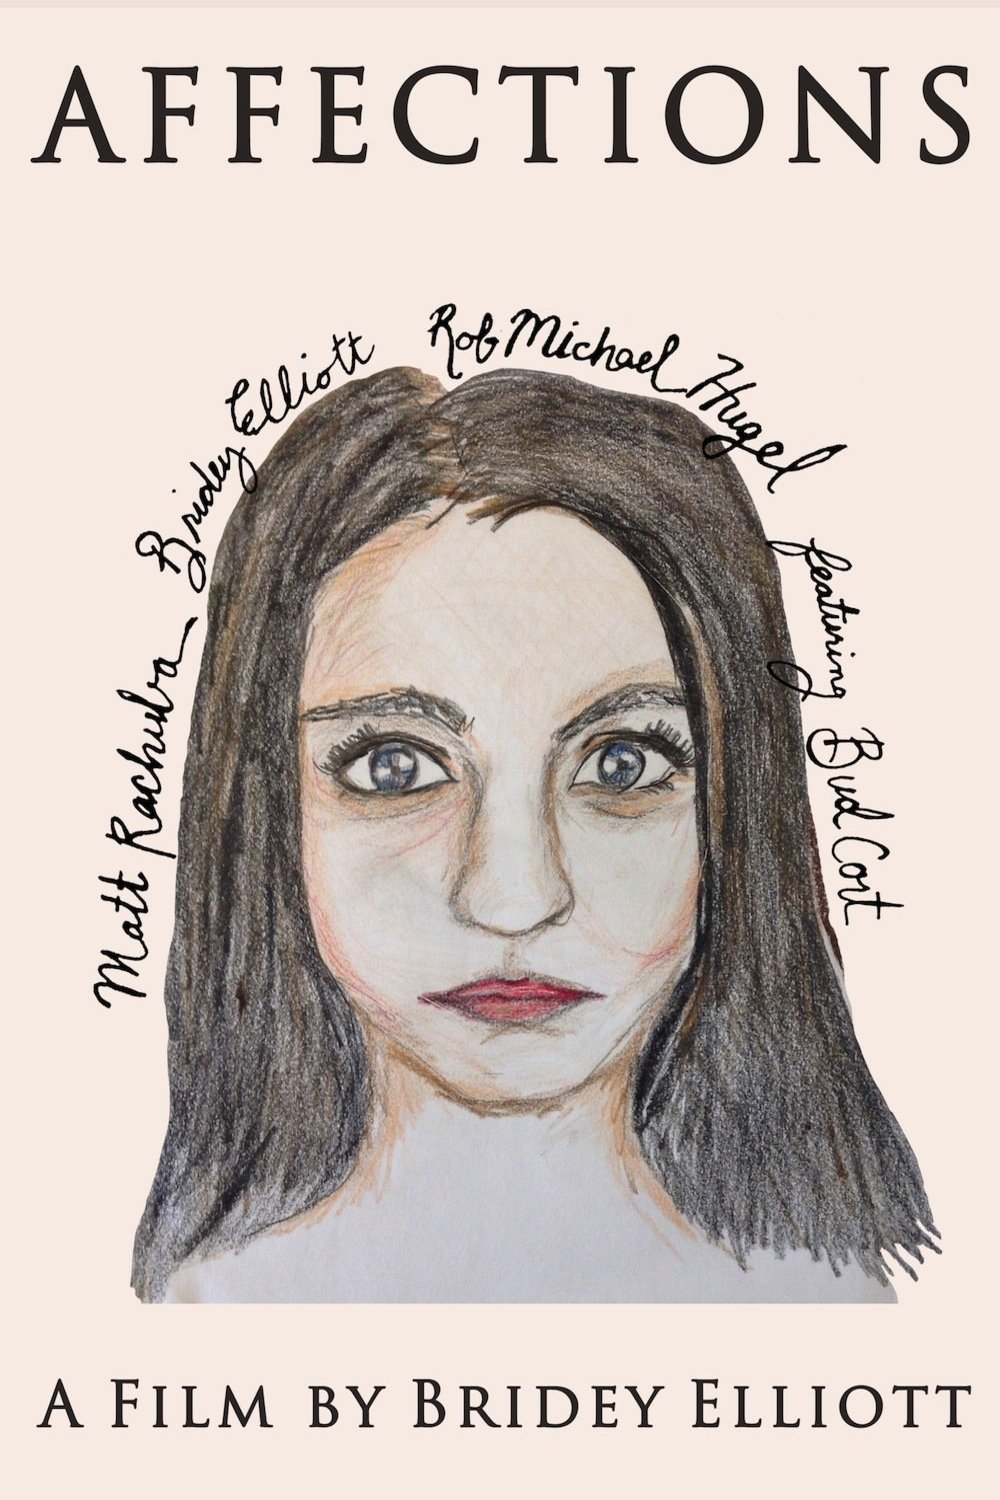 AFFECTIONS
Matt Rachuba
Bridey Elliott
Rob Michael Hugel
featuring Bud Cort
A FILM BY BRIDEY ELLIOTT